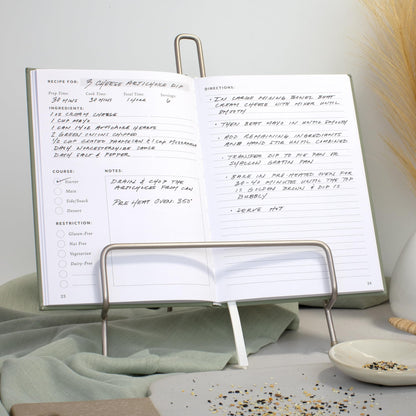 RECIPE FOR: 3 CHEESE ARTICHOKE DIP
Prep Time Cook Time Total Time Servings
30 MINS 30 MINS 1 HOUR 6
INGREDIENTS:
CREAM CHEESE
1 CUP MAYO
1 CAN 14OZ ARTICHOKE HEARTS
2 GREEN ONIONS CHOPPED
1/2 CUP GRATED PARMESAN & 1 CUP MOZZARELLA
DASH WORCESTERSHIRE SAUCE
DASH SALT & PEPPER
COURSE:
Starter
Main
Side/Snack
Dessert
RESTRICTION:
Gluten-Free
Nut Free
Vegetarian
Dairy-Free
NOTES:
DRAIN & CHOP THE
ARTICHOKES FROM CAN
PRE HEAT OVEN 350°
23
DIRECTIONS:
• IN LARGE MIXING BOWL BEAT
CREAM CHEESE WITH MIXER UNTIL
SMOOTH
• THEN BEAT MAYO IN UNTIL SMOOTH
• ADD REMAINING INGREDIENTS
AND HAND STIR UNTIL COMBINED
• TRANSFER DIP TO PIE PAN OR
SHALLOW GRATIN PAN
• BAKE IN PRE-HEATED OVEN FOR
30-40 MINUTES UNTIL THE TOP
IS GOLDEN BROWN & DIP IS
BUBBLY
• SERVE HOT
24